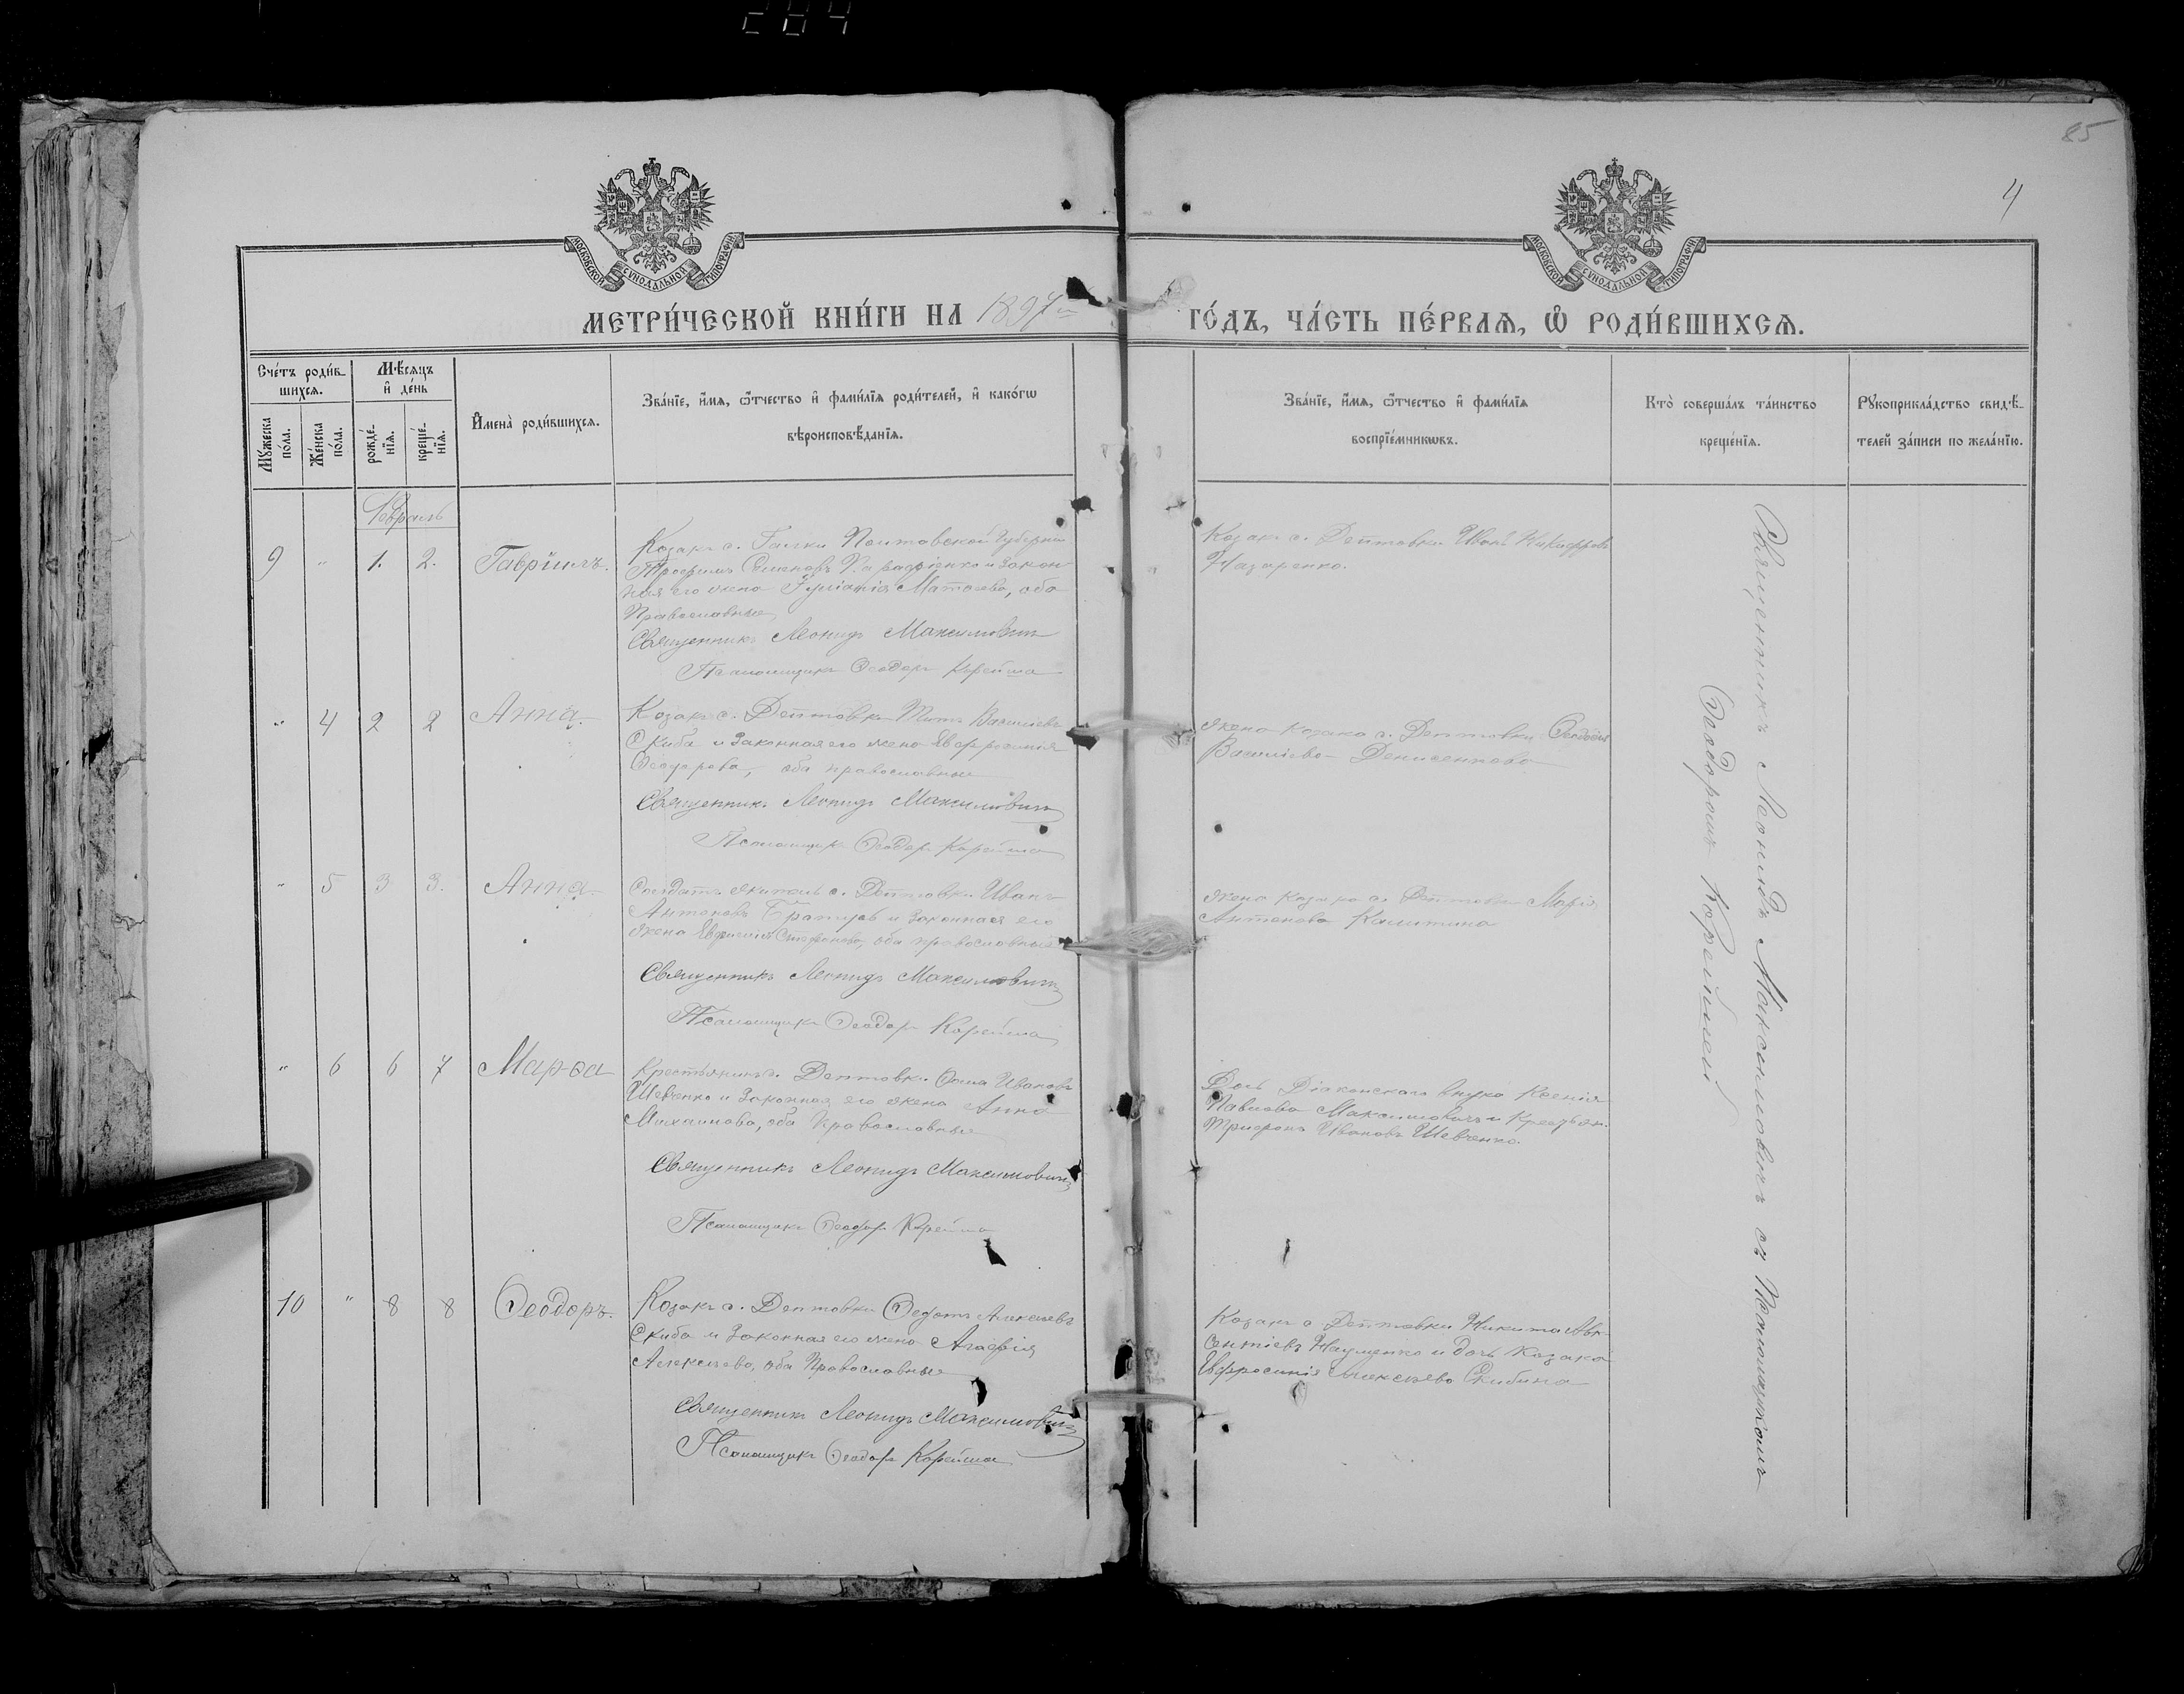 284
85
4
МОСКОВСКОЙ СѴНОДАЛЬНОЙ ТИПОГРАФІИ
МОСКОВСКОЙ СѴНОДАЛЬНОЙ ТИПОГРАФІИ
МЕТРИ́ЧЕСКОЙ КНИ́ГИ НА 1897 й ГО́ДЪ, ЧА́СТЬ ПЕ́РВАѦ, Ѽ РОДИ́ВШИХСѦ.
Сче́тъ роди́в-
шихсѧ.
Мꙋжеска по́ла.
Же́нска по́ла.
Мѣ́сѧцъ
и҆ де́нь
рожде́-
нїѧ.
креще́-
нїѧ.
И҆мена̀ роди́вшихсѧ.
Зва́нїе, и҆́мѧ, ѻ҆́тчество и҆ фами́лїѧ роди́телей, и҆ како́гѡ
вѣроисповѣ́данїѧ.
Зва́нїе, и҆́мѧ, ѻ҆́тчество и҆ фами́лїѧ
воспрїе́мникѡвъ.
Кто̀ соверша́лъ та́инство
креще́нїѧ.
Рꙋкоприкла́дство свидѣ́-
телей за́писи по жела́нїю.
Февраль
9 " 1. 2. Гавріилъ.
Козакъ с. Галки Полтавской Губерніи
Трофимъ Семеновъ и закон-
ная его жена Матѳеева, оба
Православные
Священникъ Леонидъ Максимовичъ
Псаломщикъ Ѳеодоръ Корейша
Козакъ с. Дептовки Иванъ Никифоровъ
Назаренко.
" 4 2 2 Анна.
Козакъ с. Дептовки Титъ Васильевъ
Скиба и законная его жена Евфросинія
Ѳеодорова, оба православные
Священникъ Леонидъ Максимовичъ
Псаломщикъ Ѳеодоръ Корейша
Жена козака с. Дептовки Ѳеодосія
Васильева Денисенкова
" 5 3 3. Анна.
Солдатъ житель с. Дептовки Иванъ
Антоновъ и законная его
жена Стефанова, оба православные
Священникъ Леонидъ Максимовичъ
Псаломщикъ Ѳеодоръ Корейша
Жена козака с. Дептовки Марія
Антонова
" 6 6 7 Марѳа
Крестьянинъ с. Дептовки Ѳома Ивановъ
Шевченко и законная его жена Анна
Михаилова, оба Православные
Священникъ Леонидъ Максимовичъ
Псаломщикъ Ѳеодоръ Корейша
Дочь Діаконскаго внука Ксенія
Павлова Максимовичъ и Крестьян.
Трифонъ Ивановъ Шевченко.
10 " 8 8 Ѳеодоръ.
Козакъ с. Дептовки Ѳедотъ Алексѣевъ
Скиба и законная его жена Агафія
Алексѣева, оба Православные
Священникъ Леонидъ Максимовичъ
Псаломщикъ Ѳеодоръ Корейша
Козакъ с. Дептовки Никита Авк-
сентіевъ Науменко и дочь козака
Евфросинія Алексѣева Скибина
Священникъ Леонидъ Максимовичъ съ Псаломщикомъ
Ѳеодоромъ Корейшей